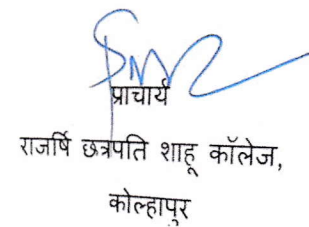 प्राचार्य
राजर्षि छत्रपति शाहू कॉलेज,
कोल्हापुर